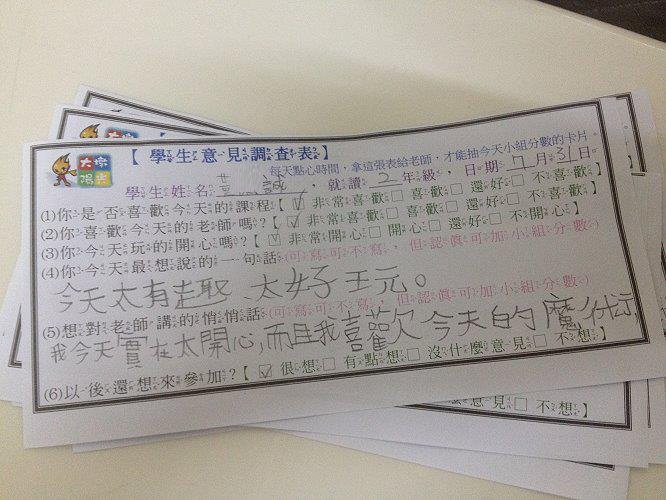 大家
陽光
【學生意見調查表】
每天點心時間，拿這張表給老師，才能抽今天小組分數的卡片。
學生姓名 誠，就讀2年級，日期:7月31日
(1)你是否喜歡今天的課程【☑非常喜歡□喜歡□還好□不喜歡】
(2)你喜歡今天的老師嗎?【☑非常喜歡□喜歡□還好□不喜歡】
(3)你今天玩的開心嗎?【☑非常開心□開心□還好□不開心】
(4)你今天最想說的一句話:(可寫可不寫，但認真可加小組分數)
今天太有走取、太好王元。
(5)想對老師講的悄悄話:(可寫可不寫，但認真可加小組分數)
我今天實在太開心,而且我喜歡今天的魔術
(6)以後還想來參加?【☑很想□有點想□沒什麼意見□不想】
意見□不想】